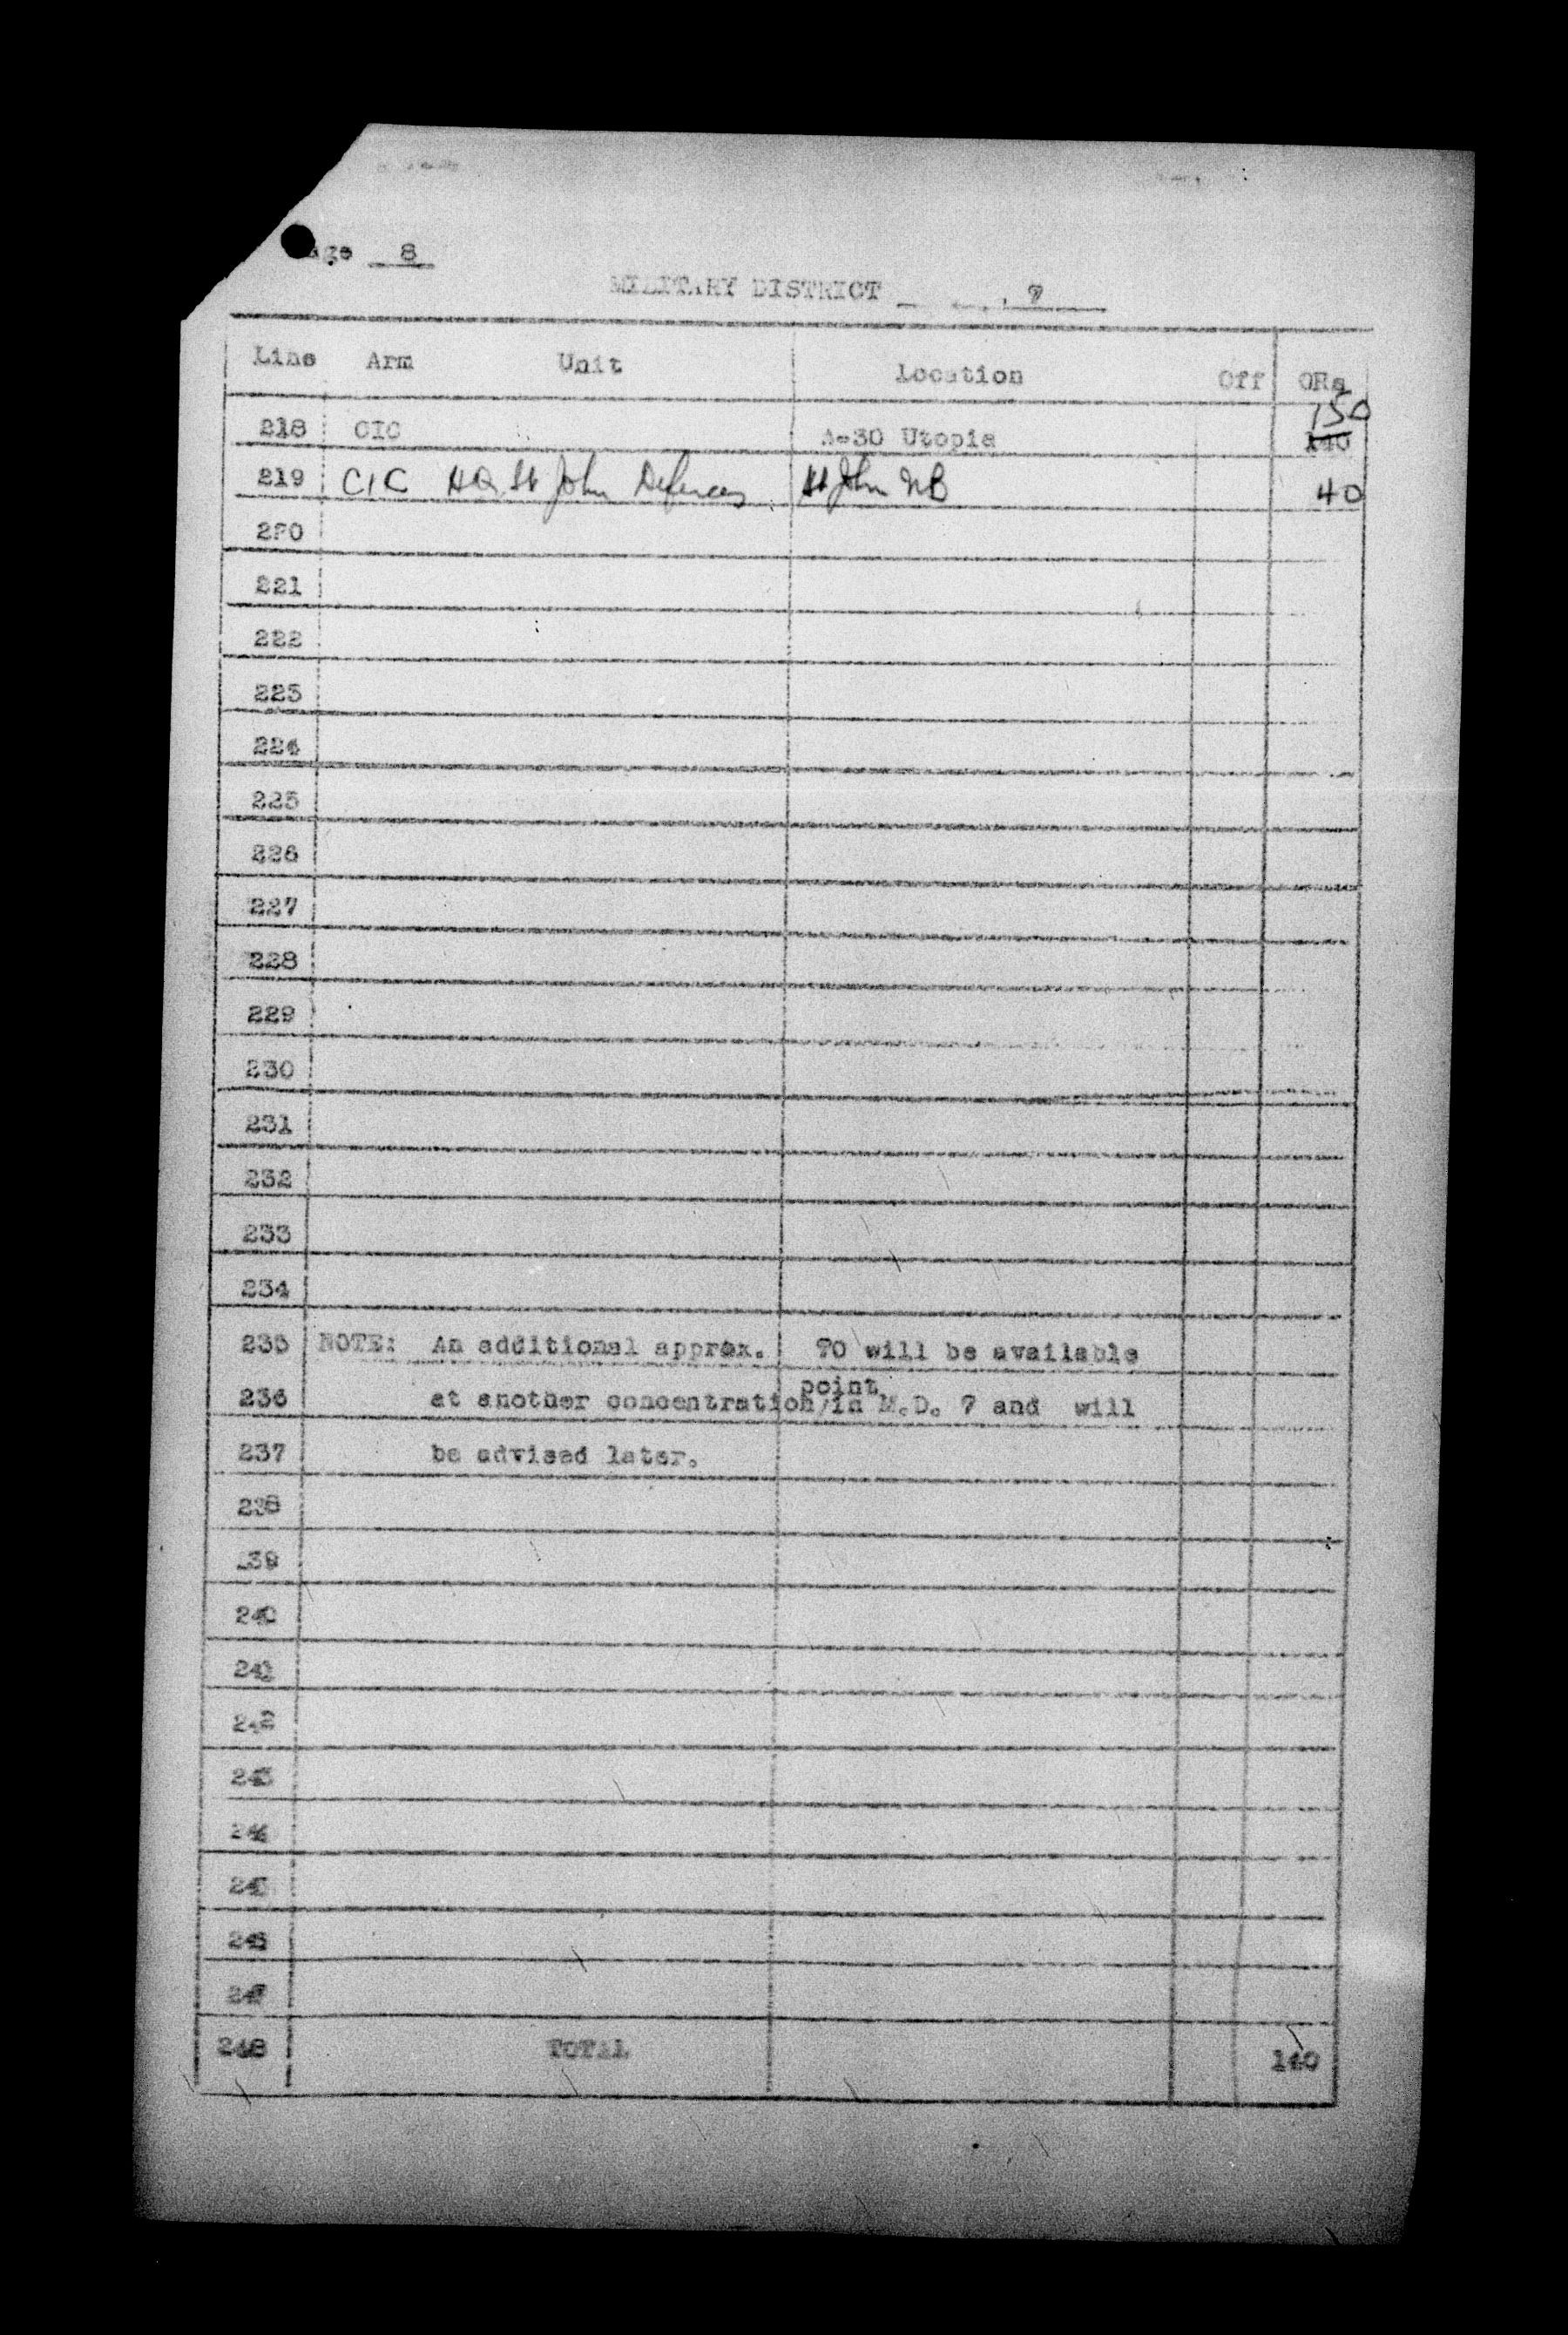 Page 8
MILITARY DISTRICT 7
Line Arm Unit Location Off ORs
150
218 CIC A-30 Utopia 140
219 CIC HQ St John Defences St John NB 40
220
221
222
223
224
225
226
227
228
229
230
231
232
233
234
235 NOTE: An additional approx. 70 will be available
point
236 at another concentration/in M.D. 7 and will
237 be advised later.
238
239
240
241
242
243
244
245
246
247
248 TOTAL 140